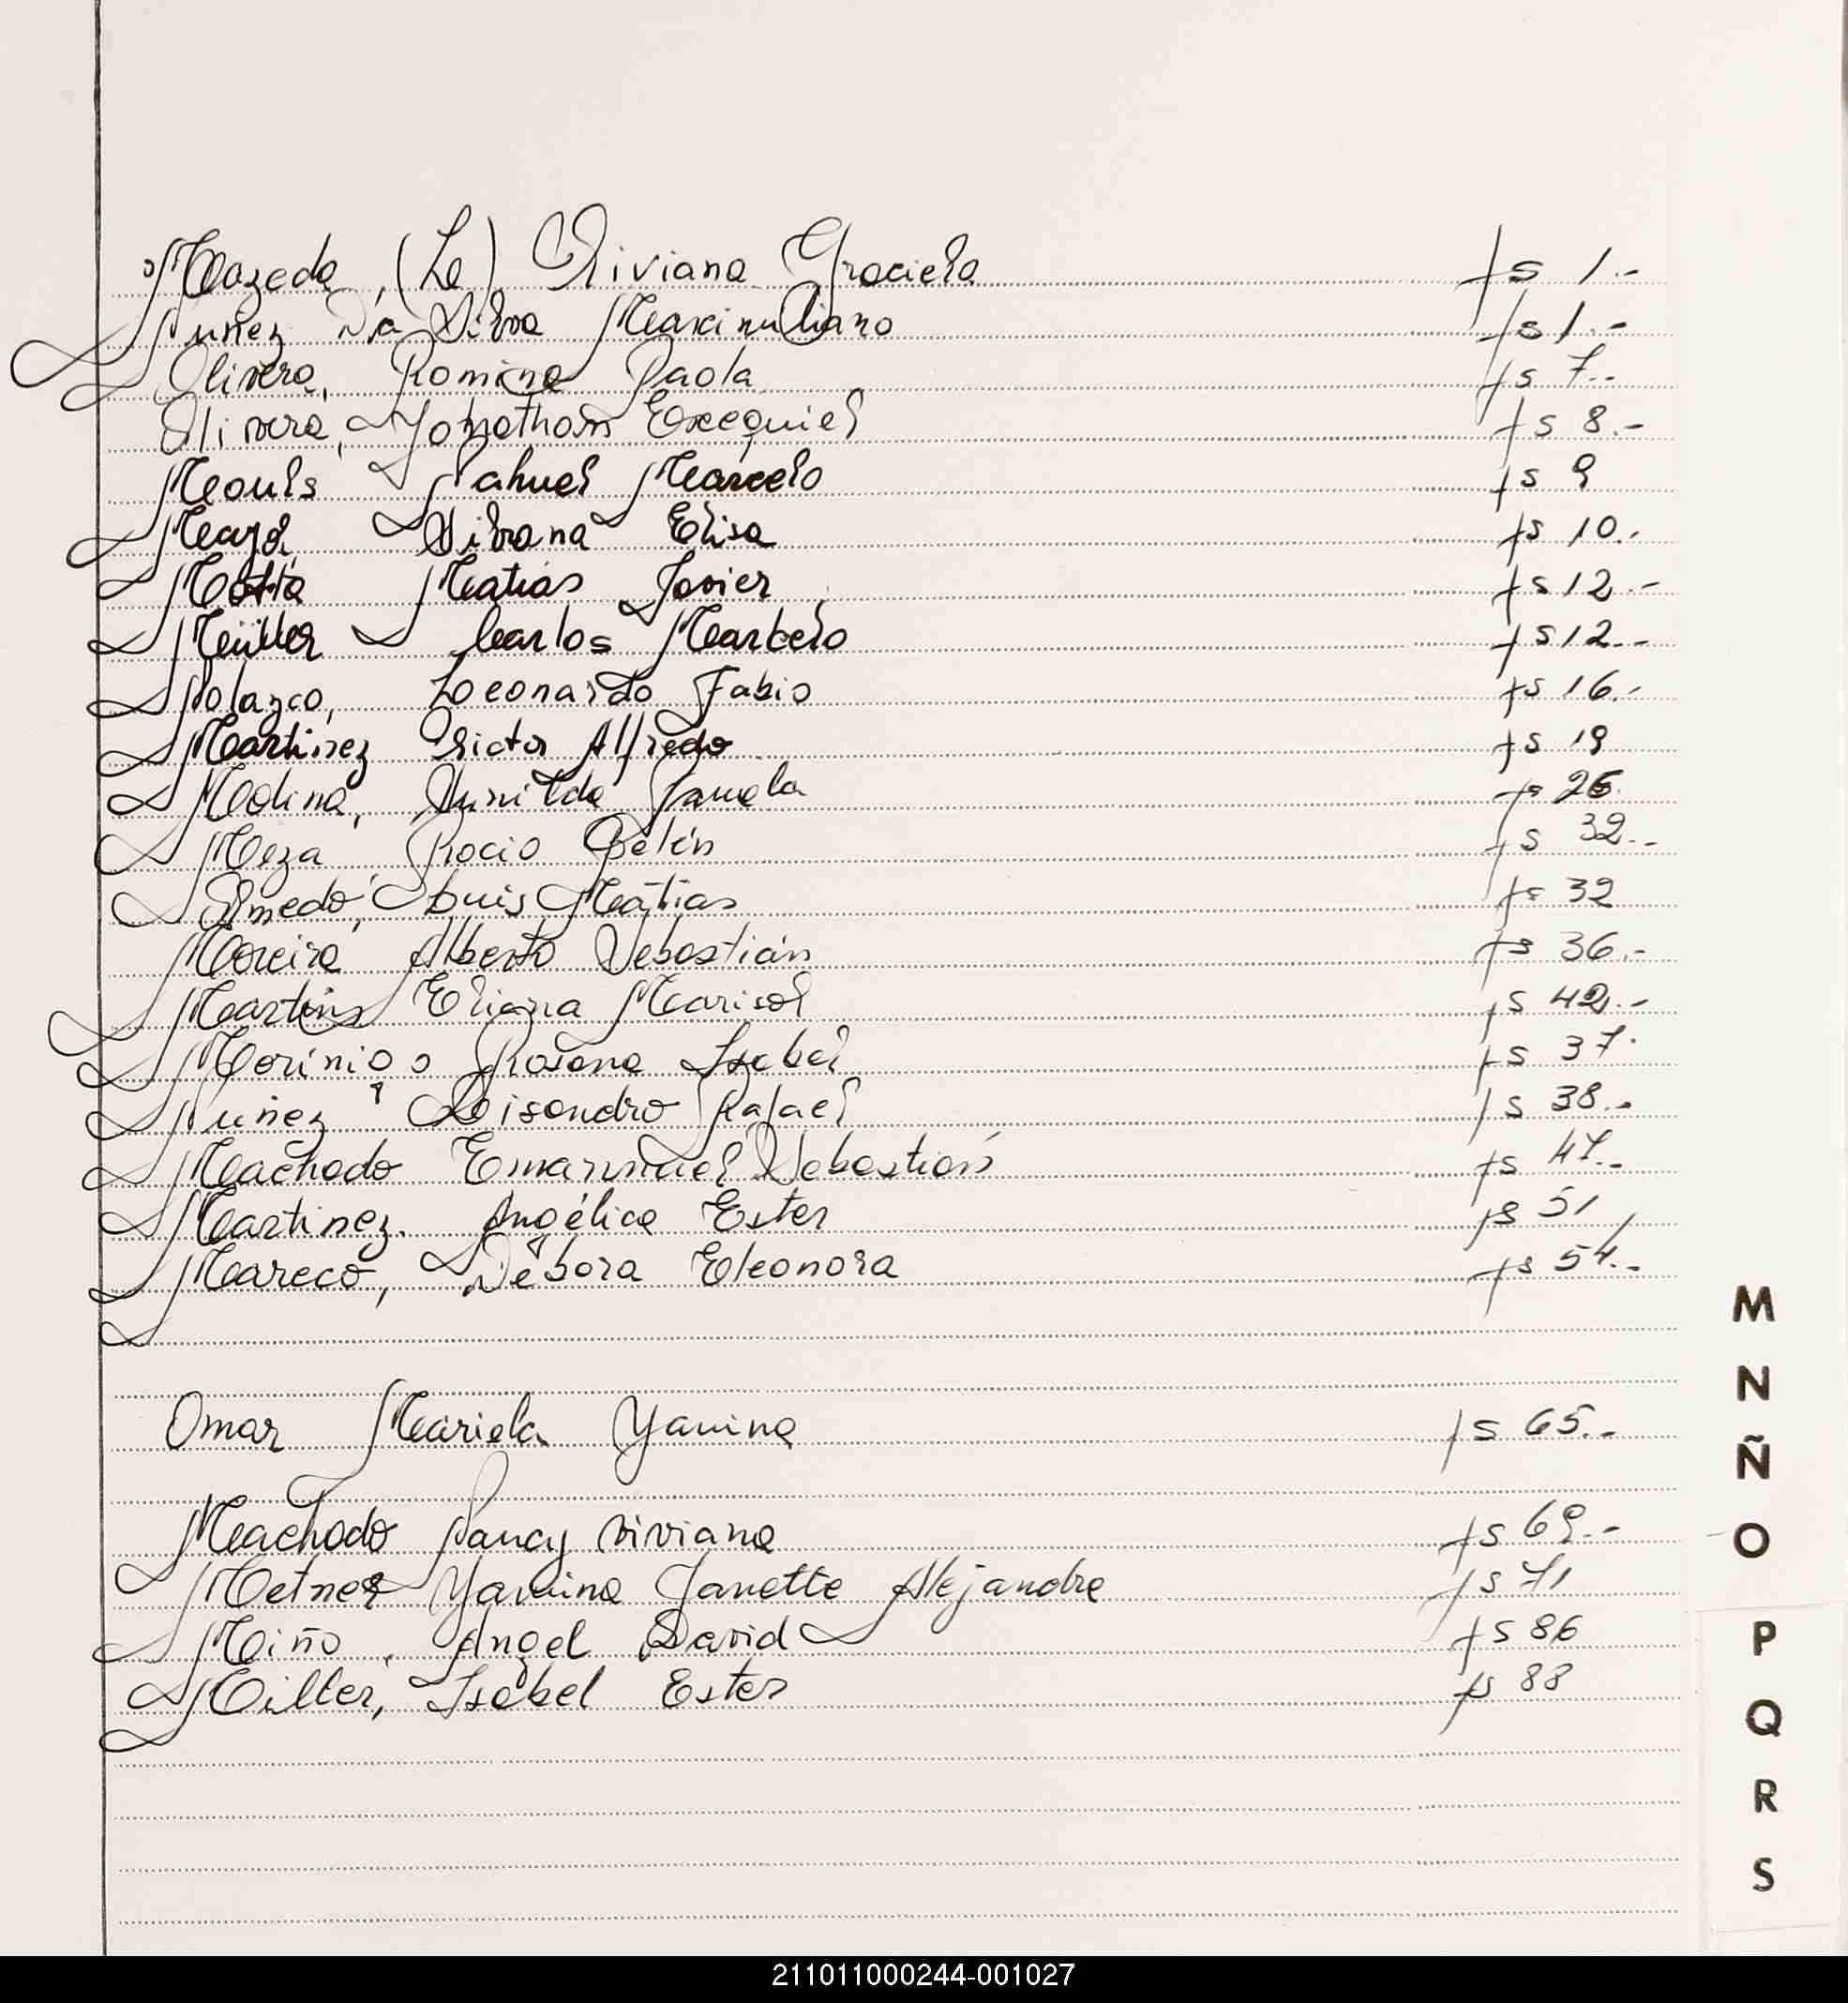 Mazeda, (La) Viviana Graciela fs 1.-
Nuñez Da Silva Maximiliano fs 1.-
Olivera, Romina Paola fs 7.-
Olivera, Johnathan Exequiel fs 8.-
Nahuel Marcelo fs 9
Silvana Elisa fs 10.-
Matias Javier fs 12.-
Müller Carlos Marcelo fs 12.-
Polazco, Leonardo Fabio fs 16.-
Martinez Victor Alfredo fs 19
Molina, fs 26.
Meza Rocio Belén fs 32.-
Olmedo, Luis Matias fs 32
Moreira Alberto Sebastián fs 36.-
Martins Eliana Marisol fs 42.-
Morinigo Rosana Isabel fs 37.
Nuñez Lisandro Rafael fs 38.-
Machado Emannuel Sebastián fs 47.-
Martinez. Angélica Ester fs 51
Mareco, Débora Eleonora fs 54.-
Omar Mariela Yanina fs 65.-
Machado Nancy Viviana fs 69.-
Metner Yanina Janette Alejandra fs 71
Miño, Angel David fs 86
Miller, Isabel Ester fs 88
M
N
Ñ
O
P
Q
R
S
211011000244-001027